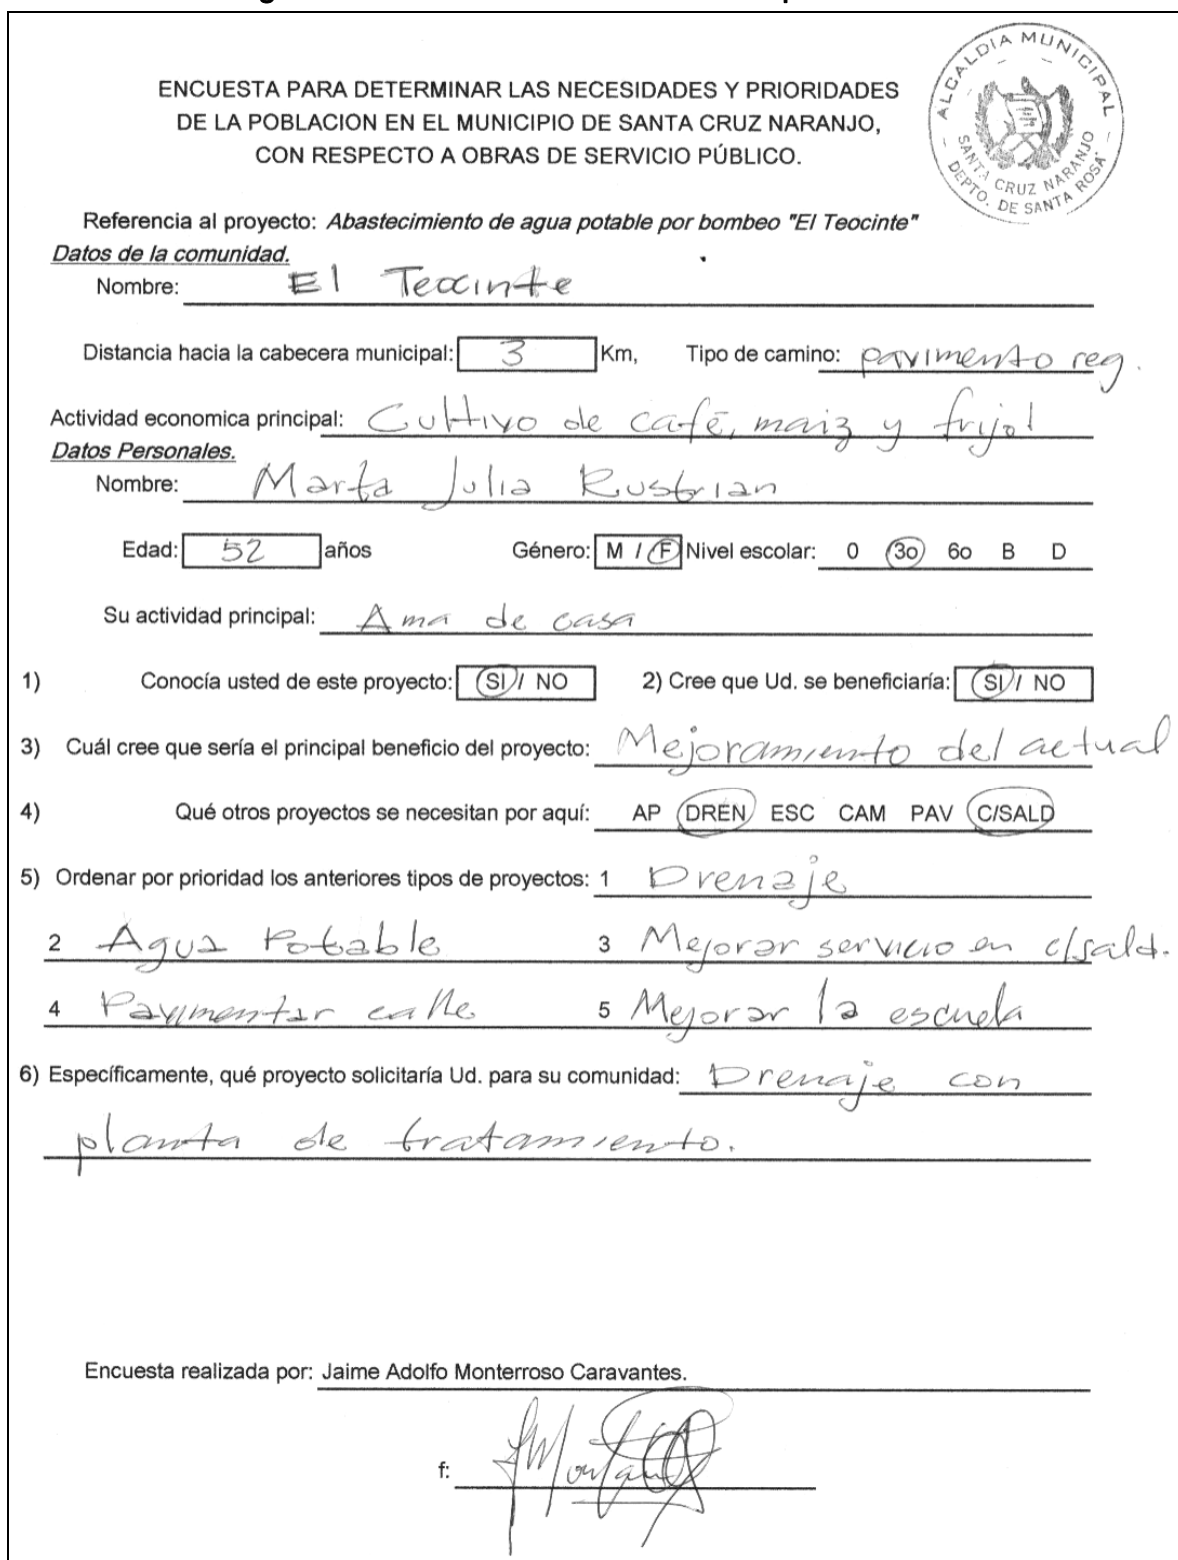 ENCUESTA PARA DETERMINAR LAS NECESIDADES Y PRIORIDADES
DE LA POBLACION EN EL MUNICIPIO DE SANTA CRUZ NARANJO,
CON RESPECTO A OBRAS DE SERVICIO PÚBLICO.
ALCALDIA MUNICIPAL
SANTA CRUZ NARANJO
DEPTO. DE SANTA ROSA
Referencia al proyecto: Abastecimiento de agua potable por bombeo "El Teocinte"
Datos de la comunidad.
Nombre: El Teocinte
Distancia hacia la cabecera municipal: 3 Km, Tipo de camino: pavimento reg.
Actividad economica principal: Cultivo de café, maiz y frijol
Datos Personales.
Nombre: Marta Julia Rustrian
Edad: 52 años Género: M / F Nivel escolar: 0 3o 6o B D
Su actividad principal: Ama de casa
1) Conocía usted de este proyecto: SI / NO 2) Cree que Ud. se beneficiaría: SI / NO
3) Cuál cree que sería el principal beneficio del proyecto: Mejoramiento del actual
4) Qué otros proyectos se necesitan por aquí: AP DREN ESC CAM PAV C/SALD
5) Ordenar por prioridad los anteriores tipos de proyectos: 1 Drenaje
2 Agua Potable 3 Mejorar servicio en c/sald.
4 Pavimentar calle 5 Mejorar la escuela
6) Específicamente, qué proyecto solicitaría Ud. para su comunidad: Drenaje con
planta de tratamiento.
Encuesta realizada por: Jaime Adolfo Monterroso Caravantes.
f: